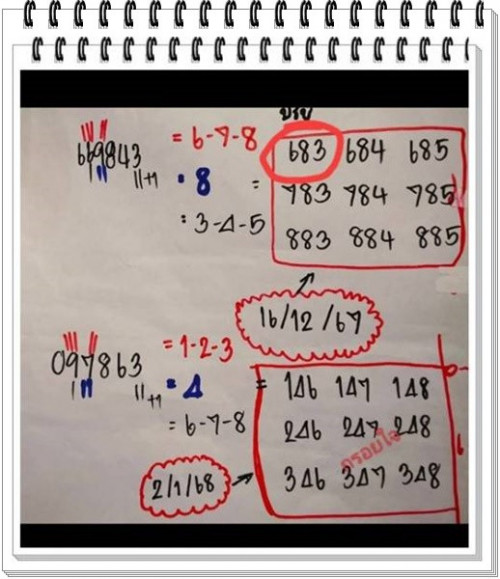 669843 = 6-7-8 683 684 685
11+1 = 8 = 783 784 785
= 3-4-5 883 884 885
16/12/67
097863 = 1-2-3
11+1 = 4 = 146 147 148
= 6-7-8 246 247 248
2/1/68 346 347 348